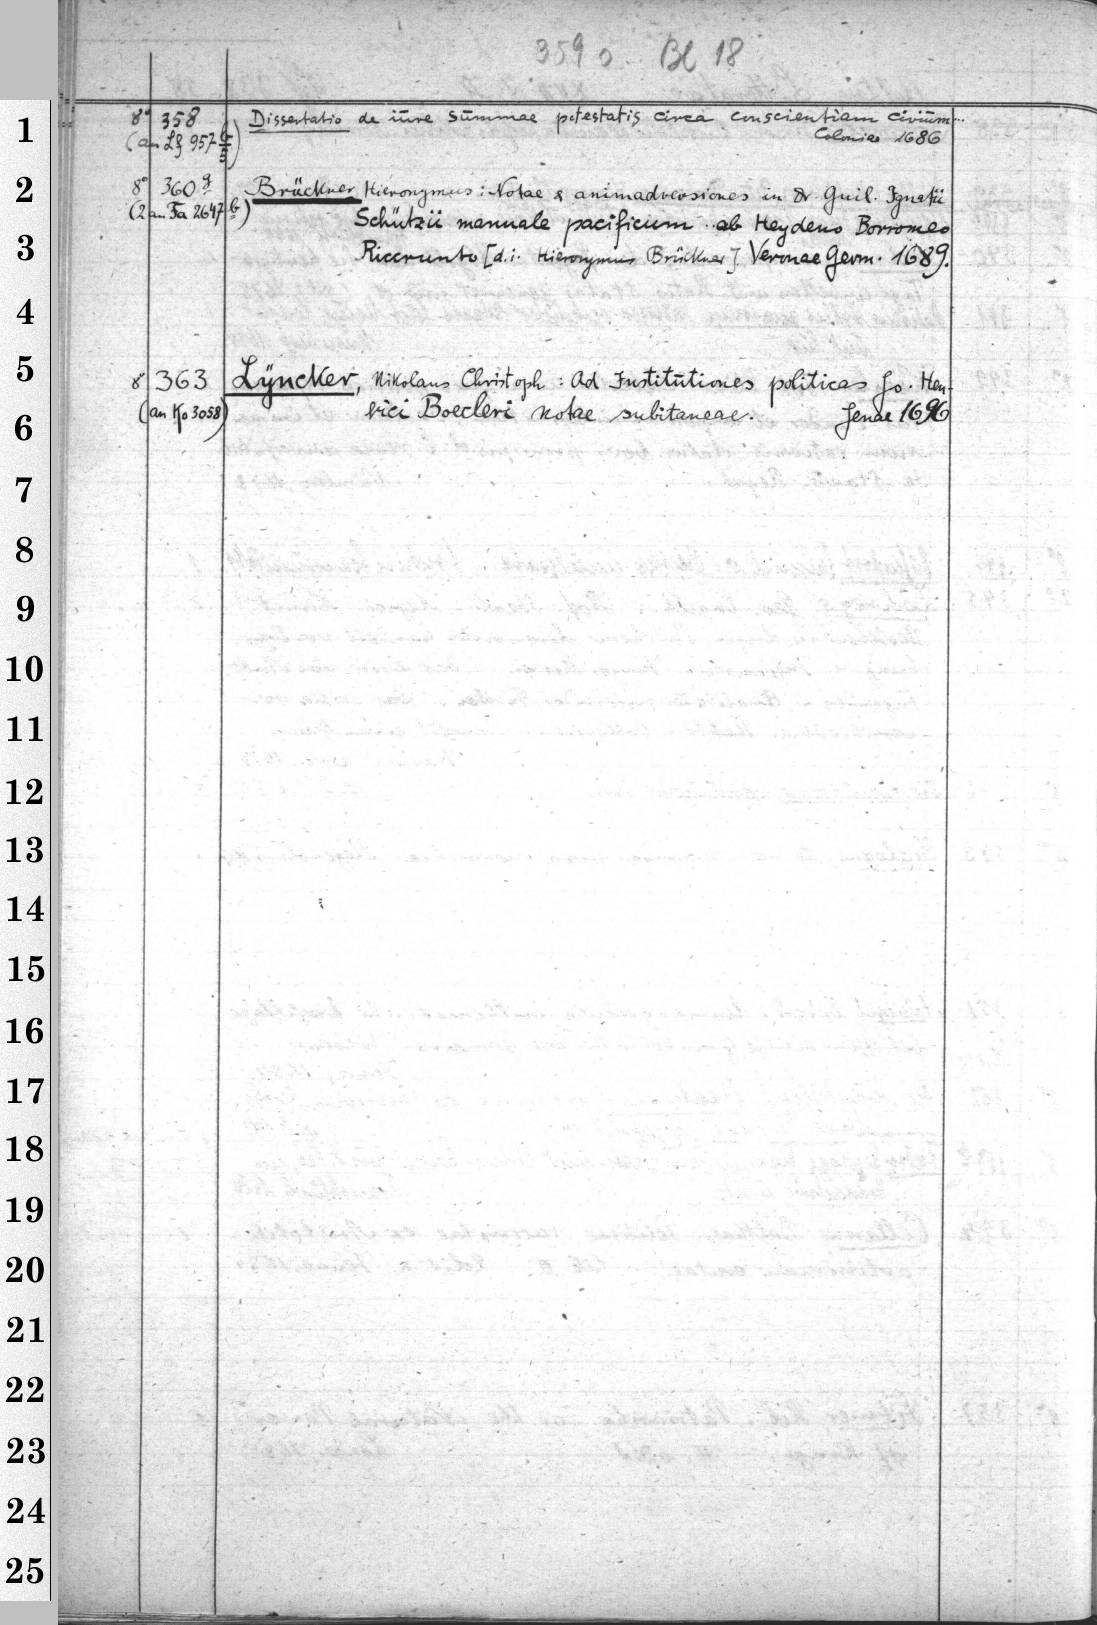 359 o Bl 18
1
8° 358 Dissertatio de iūre sūmmae potestatis circa conscientiam civiūm
(an Lg 957 Coloniae 1686
2
8° 360 g Brückner, Hieronymus: Notae & animadversiones in Dr Guil. Ignatii
(2 an Fa 2647 b) Schützii manuale pacificum ab Heydeno Borromeo
3
Riccrunto [d.i. Hieronymus Brückner] Veronae Germ. 1689.
4
5
8° 363 Lÿncker, Nikolaus Christoph: Ad Institūtiones politicas Jo. Hen-
(an Ko 3058) rici Boecleri notae subitaneae. Jenae 1696
6
7
8
9
10
11
12
13
14
15
16
17
18
19
20
21
22
23
24
25